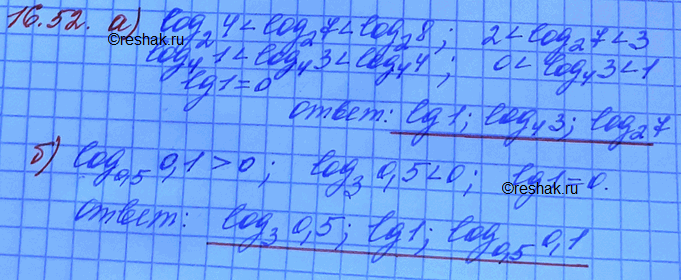 16.52. а) log₂4<log₂7<log₂8; 2<log₂7<3
log₄1<log₄3<log₄4; 0<log₄3<1
lg1=0
ответ: lg1; log₄3; log₂7
б) log₀,₅0,1>0; log₃0,5<0; lg1=0.
ответ: log₃0,5; lg1; log₀,₅0,1
©reshak.ru
©reshak.ru